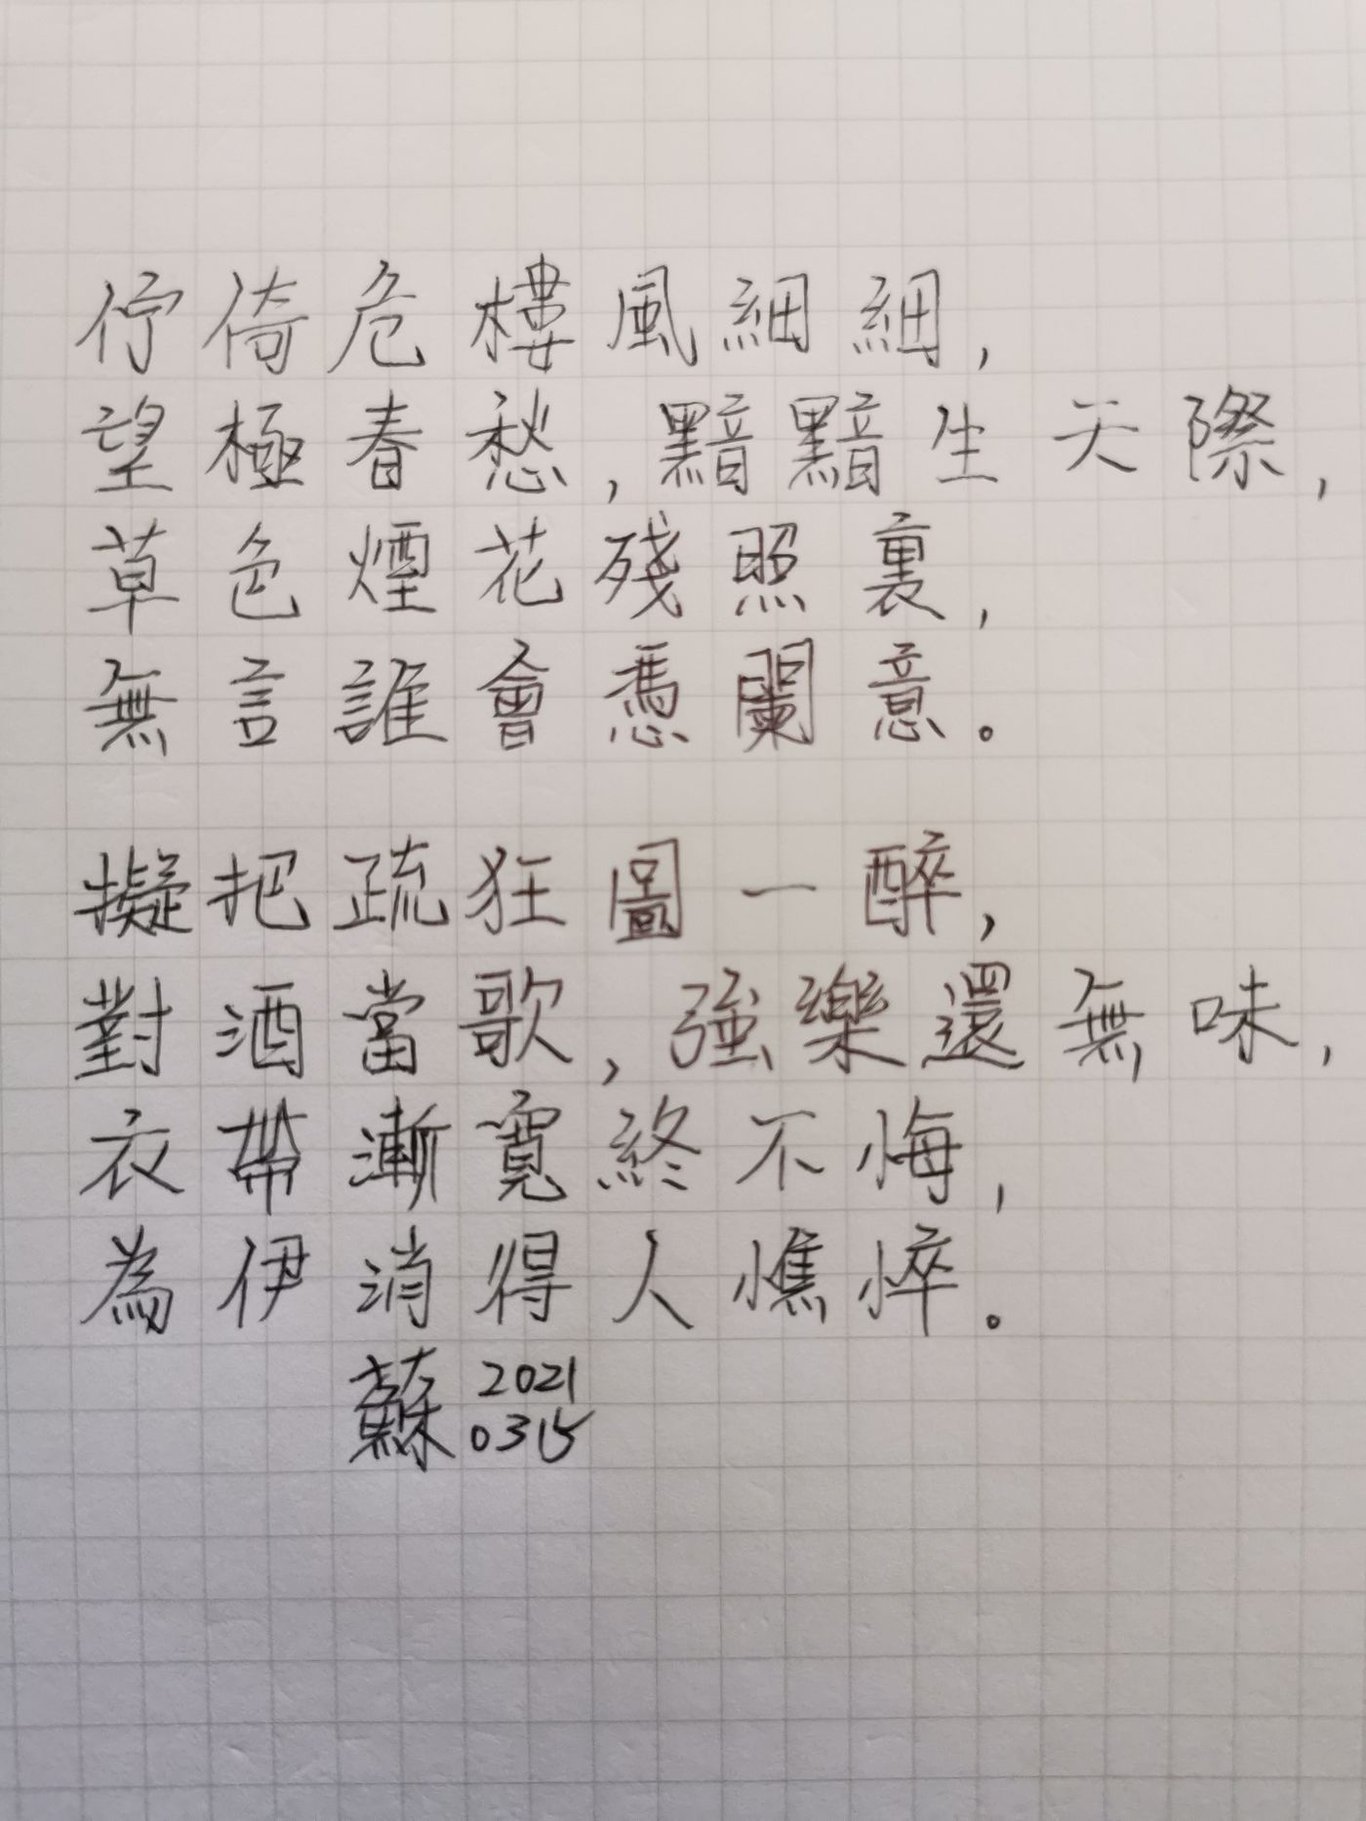 佇倚危樓風細細，
望極春愁，黯黯生天際，
草色煙花殘照裏，
無言誰會憑闌意。
擬把疏狂圖一醉，
對酒當歌，強樂還無味，
衣帶漸寬終不悔，
為伊消得人憔悴。
蘇 2021
0315